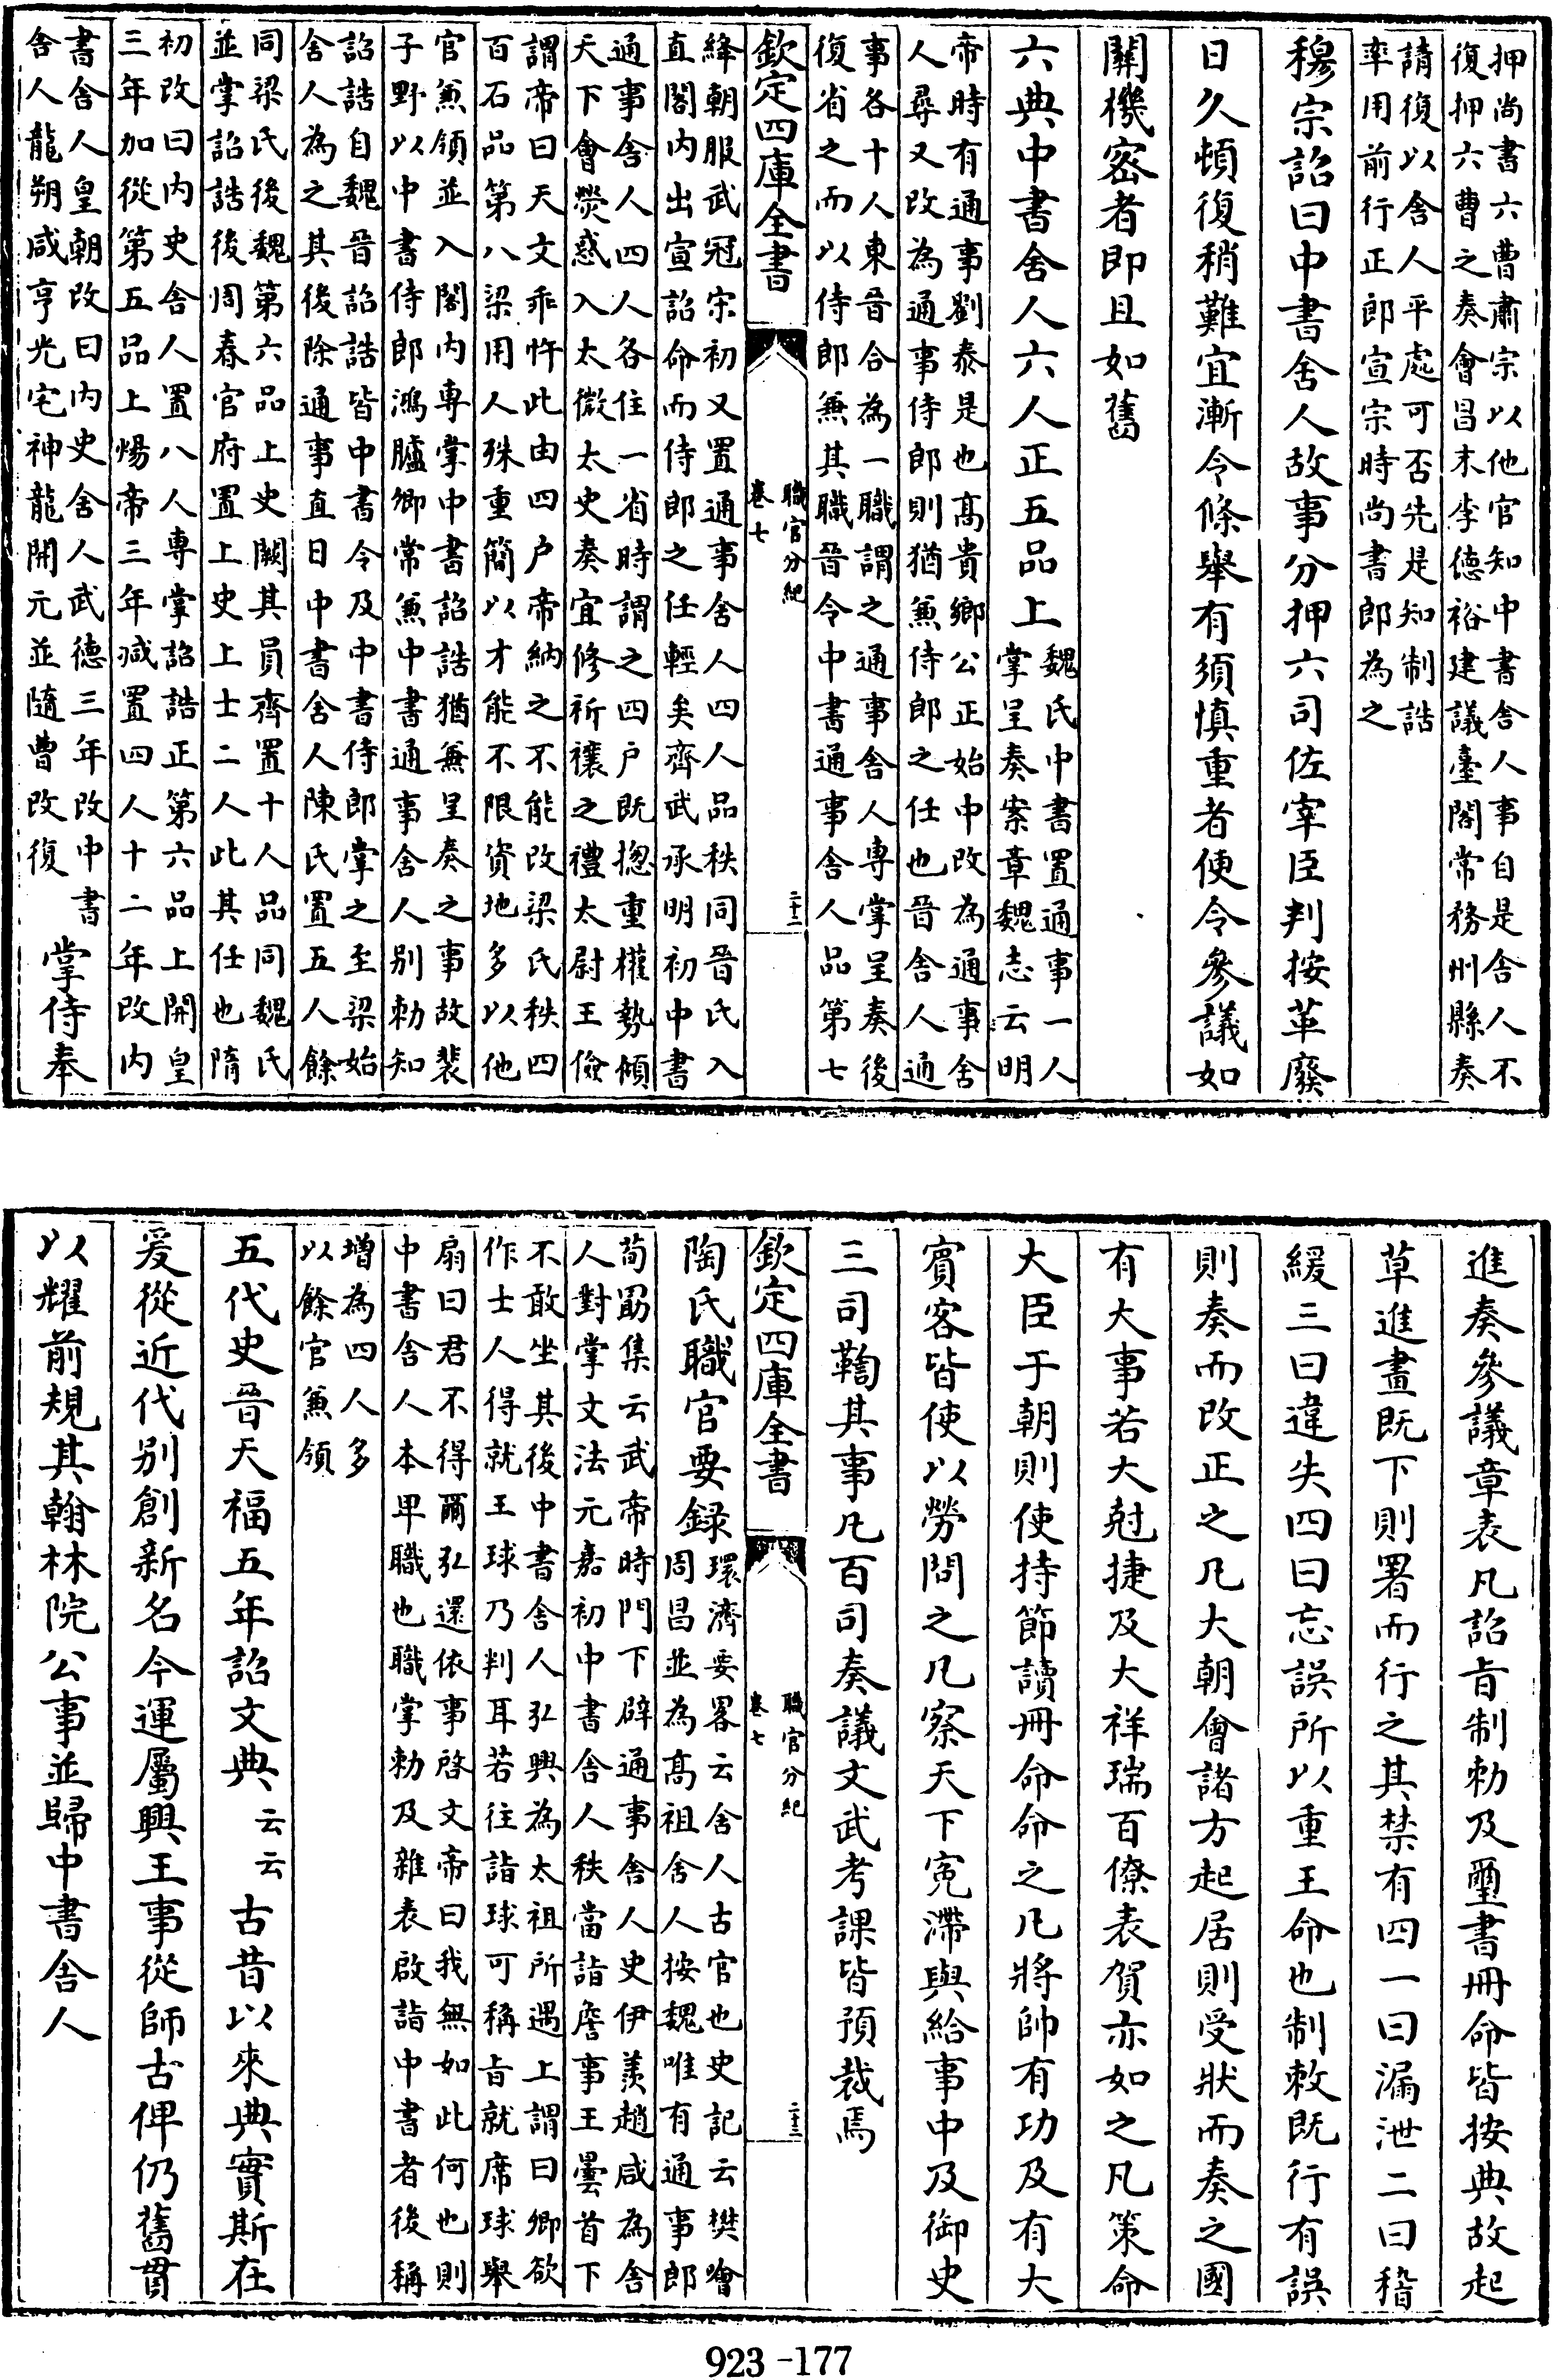 押尚書六曹肅宗以他官知中書舍人事自是舍人不
復押六曹之奏會昌末李德裕建議臺閣常務州縣奏
請復以舍人平處可否先是知制誥
率用前行正郎宣宗時尚書郎為之
穆宗詔曰中書舍人故事分押六司佐宰臣判按革廢
日久頓復稍難宜漸令條舉有須慎重者便令參議如
關機密者即且如舊
六典中書舍人六人正五品上
魏氏中書置通事一人
掌呈奏案章魏志云明
帝時有通事劉泰是也髙貴鄉公正始中改為通事舍
人尋又改為通事侍郎則猶兼侍郎之任也晉舍人通
事各十人東晉合為一職謂之通事舍人專掌呈奏後
復省之而以侍郎兼其職晉令中書通事舍人品第七
欽定四庫全書
職官分紀
卷七
二十二
絳朝服武冠宋初又置通事舍人四人品秩同晉氏入
直閣內出宣詔命而侍郎之任輕矣齊武承明初中書
通事舍人四人各住一省時謂之四户既揔重權勢傾
天下會熒惑入太微太史奏宜修祈禳之禮太尉王儉
謂帝曰天文乖忤此由四户帝納之不能改梁氏秩四
百石品第八梁用人殊重簡以才能不限資地多以他
官兼領並入閣內專掌中書詔誥猶兼呈奏之事故裴
子野以中書侍郎鴻臚卿常兼中書通事舍人别勅知
詔誥自魏晉詔誥皆中書令及中書侍郎掌之至梁始
舍人為之其後除通事直曰中書舍人陳氏置五人餘
同梁氏後魏第六品上史闕其員齊置十人品同魏氏
並掌詔誥後周春官府置上史上士二人此其任也隋
初改曰內史舍人置八人專掌詔誥正第六品上開皇
三年加從第五品上煬帝三年減置四人十二年改內
書舍人皇朝改曰內史舍人武德三年改中書
舍人龍朔咸亨光宅神龍開元並隨曹改復
掌侍奉
進奏參議章表凡詔旨制勅及璽書冊命皆按典故起
草進畫既下則署而行之其禁有四一曰漏泄二曰稽
緩三曰違失四曰忘誤所以重王命也制敕既行有誤
則奏而改正之凡大朝會諸方起居則受狀而奏之國
有大事若大尅捷及大祥瑞百僚表賀亦如之凡策命
大臣于朝則使持節讀冊命命之凡將帥有功及有大
賓客皆使以勞問之凡察天下寃滯與給事中及御史
三司鞫其事凡百司奏議文武考課皆預裁焉
欽定四庫全書
職官分紀
卷七
二十三
陶氏職官要録
環濟要畧云舍人古官也史記云樊噲
周昌並為髙祖舍人按魏唯有通事郎
荀勗集云武帝時門下辟通事舍人史伊羨趙咸為舍
人對掌文法元嘉初中書舍人秩當詣詹事王曇首下
不敢坐其後中書舍人弘興為太祖所遇上謂曰卿欲
作士人得就王球乃判耳若往詣球可稱旨就席球舉
扇曰君不得爾弘還依事啓文帝曰我無如此何也則
中書舍人本卑職也職掌勅及雜表啟詣中書者後稱
增為四人多
以餘官兼領
五代史晉天福五年詔文典云云古昔以來典實斯在
爰從近代别創新名今運屬興王事從師古俾仍舊貫
以耀前規其翰林院公事並歸中書舍人
923-177